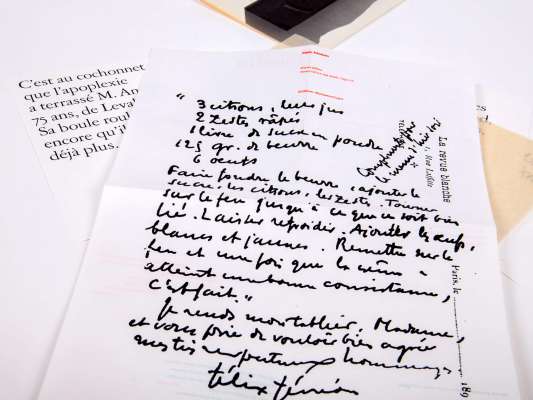 C'est au cochonnet
que l'apoplexie
a terrassé M. An
75 ans, de Leval
Sa boule roul
encore qu'il
déjà plus.
La revue blanche
1, Rue Laffitte
Paris, le
189
" 3 citrons, leur jus
2 zestes râpés
1 livre de sucre en poudre
125 gr. de beurre
6 oeufs
Faire fondre le beurre, ajouter le
sucre, les citrons, les zestes. Tourner
sur le feu jusqu'à ce que ce soit bien
lié. Laisser refroidir. Ajouter les oeufs,
blancs et jaunes. Remettre sur le
feu et une fois que la crème a
atteint une bonne consistance,
c'est fait. "
Je rends mon tablier, Madame,
et vous prie de vouloir bien agréer
mes très respectueux hommages
félix fénéon